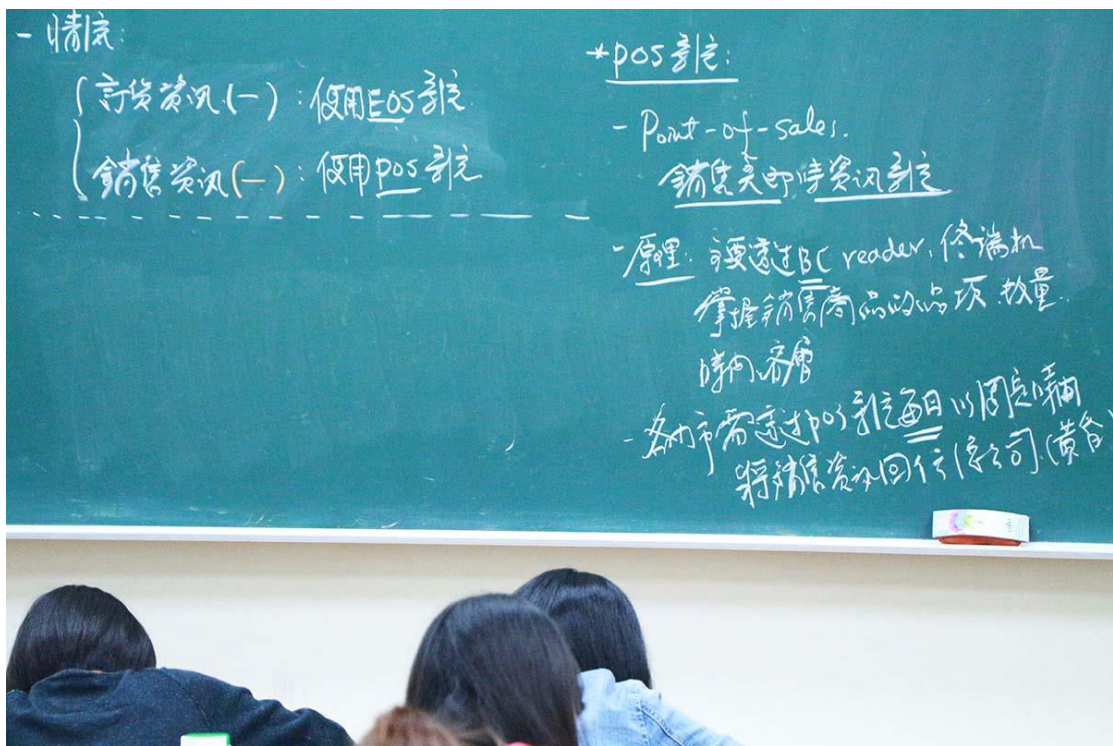 - 情流:
訂貨資讯(一):使用EOS系統
銷售資讯(一):使用POS系統
*POS系統:
- Point-of-sales.
銷售点即時資讯系統
- 原理: 主要透过BC reader, 终端机
掌握銷售商品的品项、数量
時间、客層
- 各門市需透过POS系統每日以固定時間
將銷售資讯回传(總公司).(黄昏